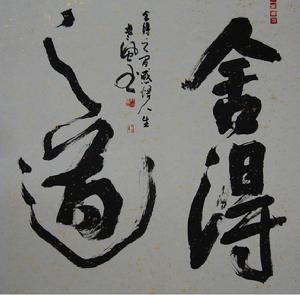 舍得
之道
舍得之间感悟人生